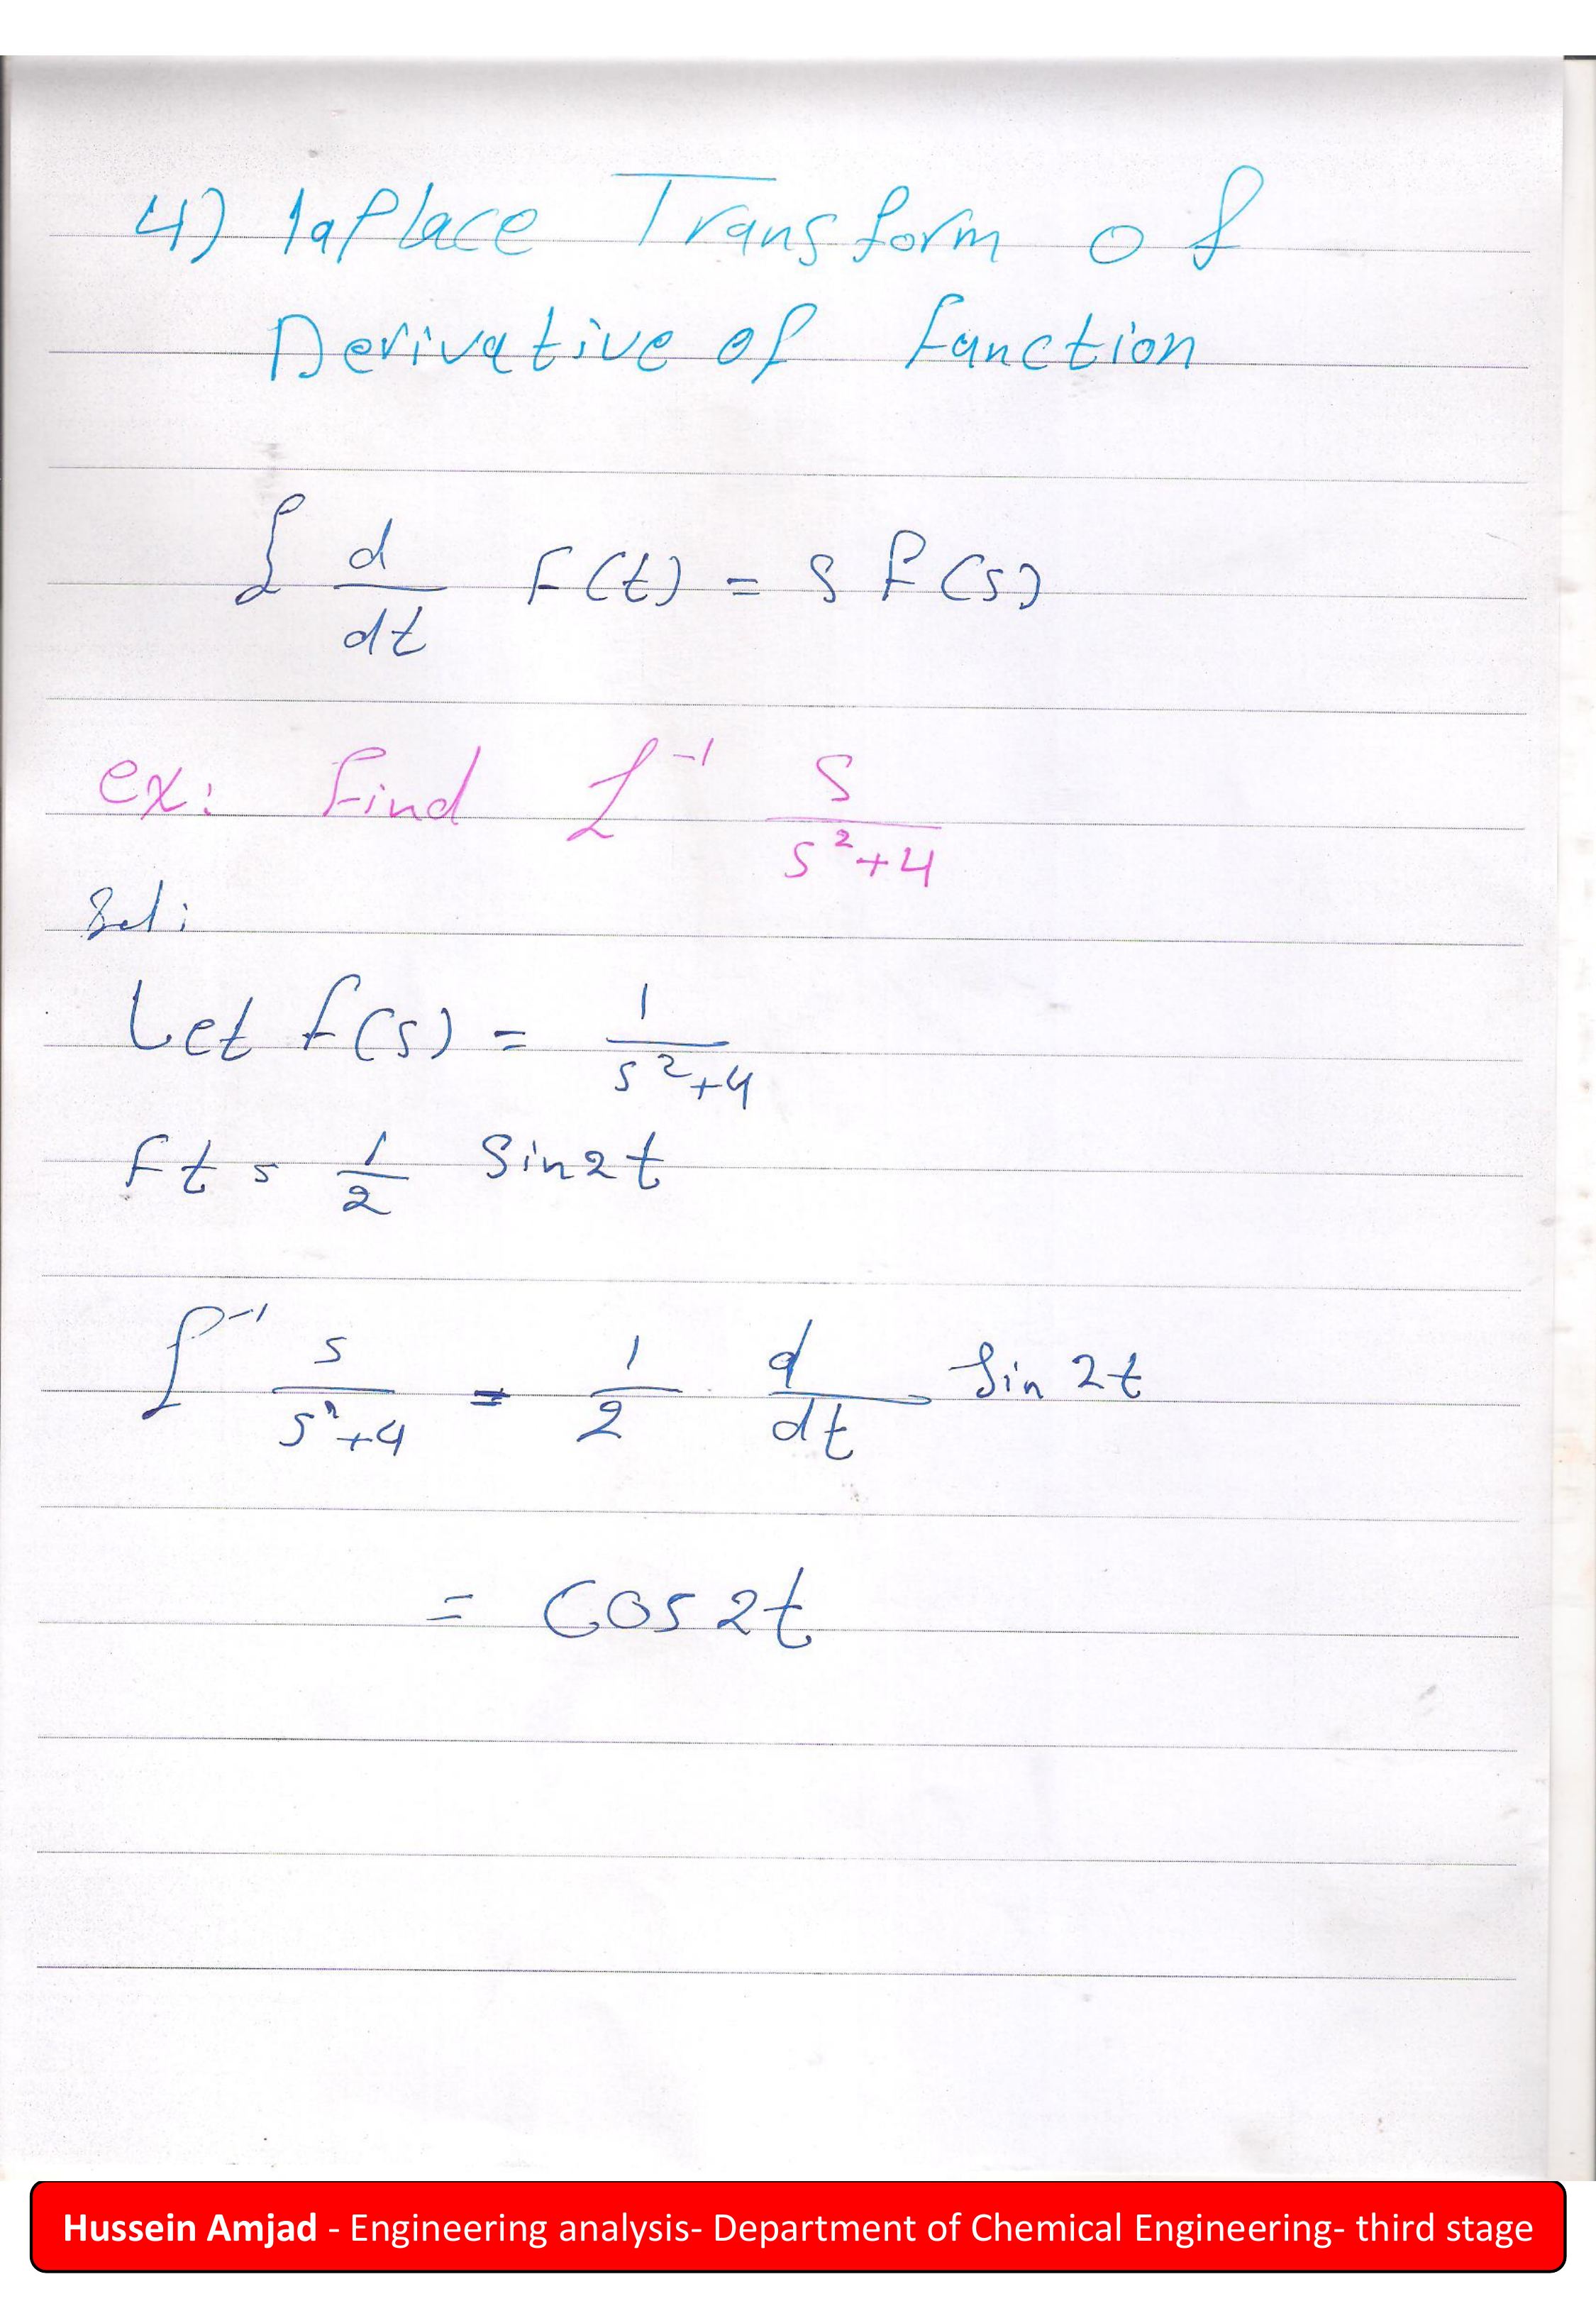 4) laplace Transform of
Derivative of function
ℒ d/dt F(t) = s f(s)
ex: find ℒ⁻¹ s/(s²+4)
Sol:
Let f(s) = 1/(s²+4)
Ft = 1/2 Sin2t
ℒ⁻¹ s/(s²+4) = 1/2 d/dt Sin 2t
= Cos2t
Hussein Amjad - Engineering analysis- Department of Chemical Engineering- third stage